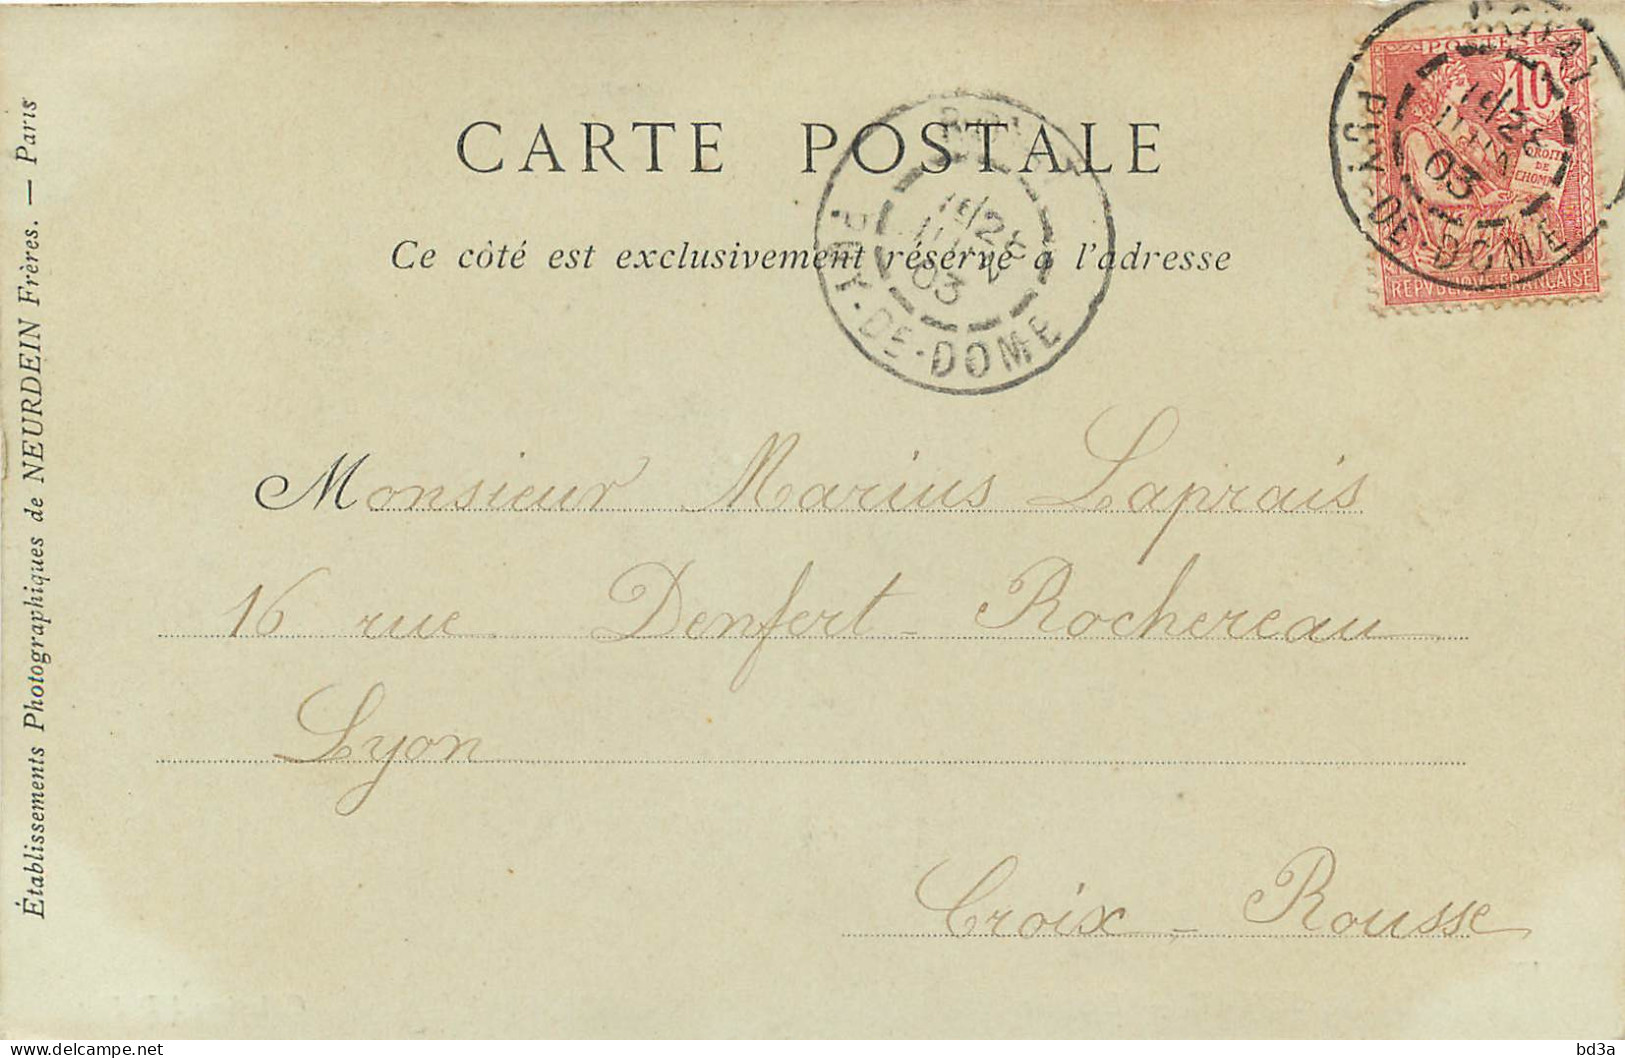 CARTE POSTALE
Ce côté est exclusivement réservé à l'adresse
Monsieur Marius Laprais
16 rue Denfert-Rochereau
Lyon
Croix-Rousse
Établissements Photographiques de NEURDEIN Frères. — Paris
PUY-DE-DOME
03
POSTES
10
DROITS
DE
L'HOMME
ROYAT
PUY-DE-DOME
03
REPVBLIQVE FRANÇAISE
delcampe.net
bd3a